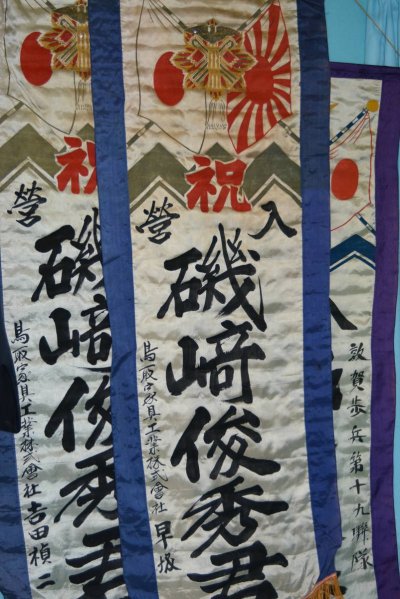 祝
入營
磯﨑俊秀君
鳥取家具工業株式會社 早坂
祝
營
磯﨑俊秀君
鳥取家具工業株式會社 吉田槙二
敦賀歩兵第十九聯隊